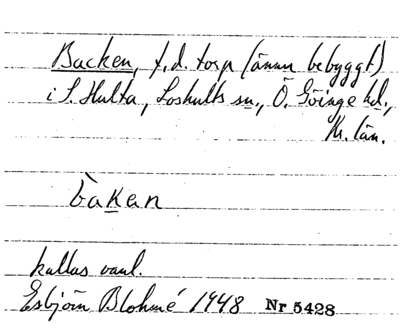 Backen, f.d. torp (ännu bebyggt)
i S. Hulta, Loshults sn., Ö. Göinge hd.,
Kr. län.
bakan
kallas vanl.
Esbjörn Blohmé 1948 Nr 5428